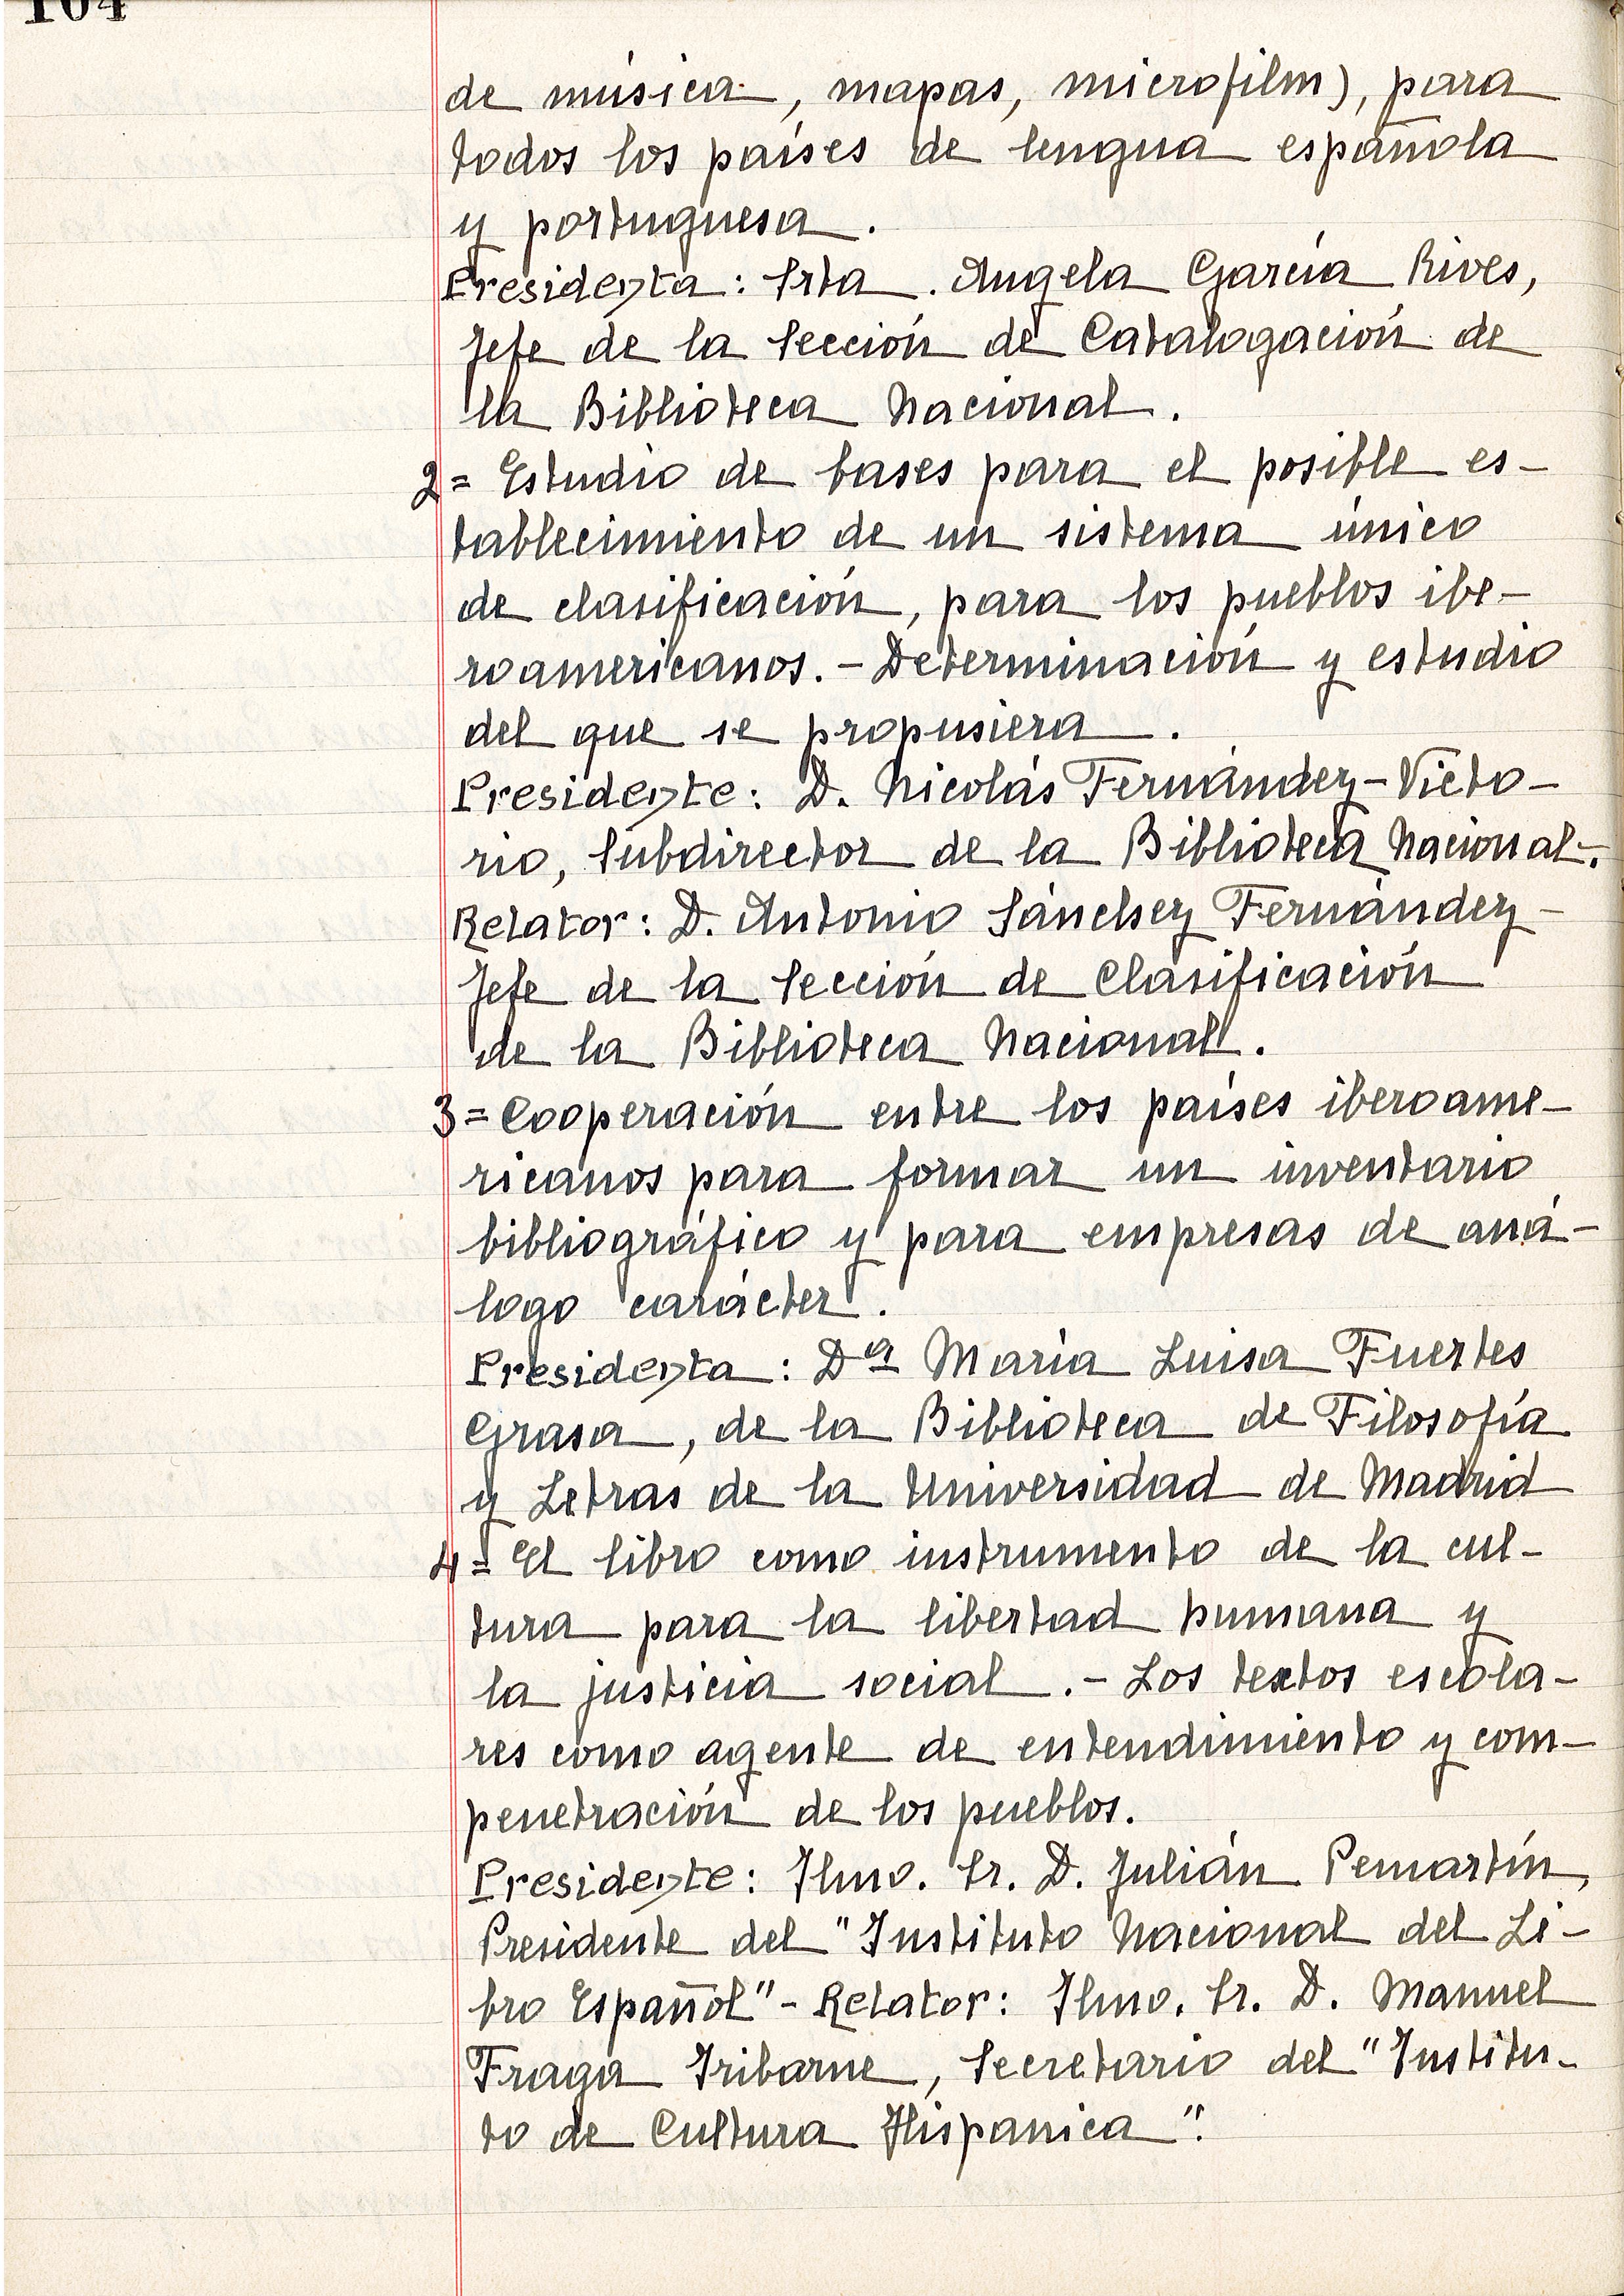 104
de música, mapas, microfilm), para
todos los países de lengua española
y portuguesa.
Presidenta: Srta. Angela García Rives,
Jefe de la Sección de Catalogación de
la Biblioteca Nacional.
2= Estudio de bases para el posible es-
tablecimiento de un sistema único
de clasificación, para los pueblos ibe-
roamericanos.- Determinación y estudio
del que se propusiera.
Presidente: D. Nicolás Fernández-Victo-
rio, Subdirector de la Biblioteca Nacional-.
Relator: D. Antonio Sánchez Fernández-
Jefe de la Sección de Clasificación
de la Biblioteca Nacional.
3= Cooperación entre los países iberoame-
ricanos para formar un inventario
bibliográfico y para empresas de aná-
logo carácter.
Presidenta: Dª María Luisa Fuertes
Grasa, de la Biblioteca de Filosofía
y Letras de la Universidad de Madrid
4= El libro como instrumento de la cul-
tura para la libertad humana y
la justicia social.- Los textos escola-
res como agente de entendimiento y com-
penetración de los pueblos.
Presidente: Ilmo. Sr. D. Julián Pemartín,
Presidente del "Instituto Nacional del Li-
bro Español"- Relator: Ilmo. Sr. D. Manuel
Fraga Iribarne, Secretario del "Institu-
to de Cultura Hispanica".